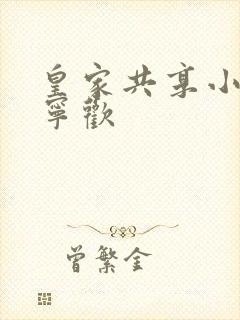 皇家共享小
寧歡
曾繁金